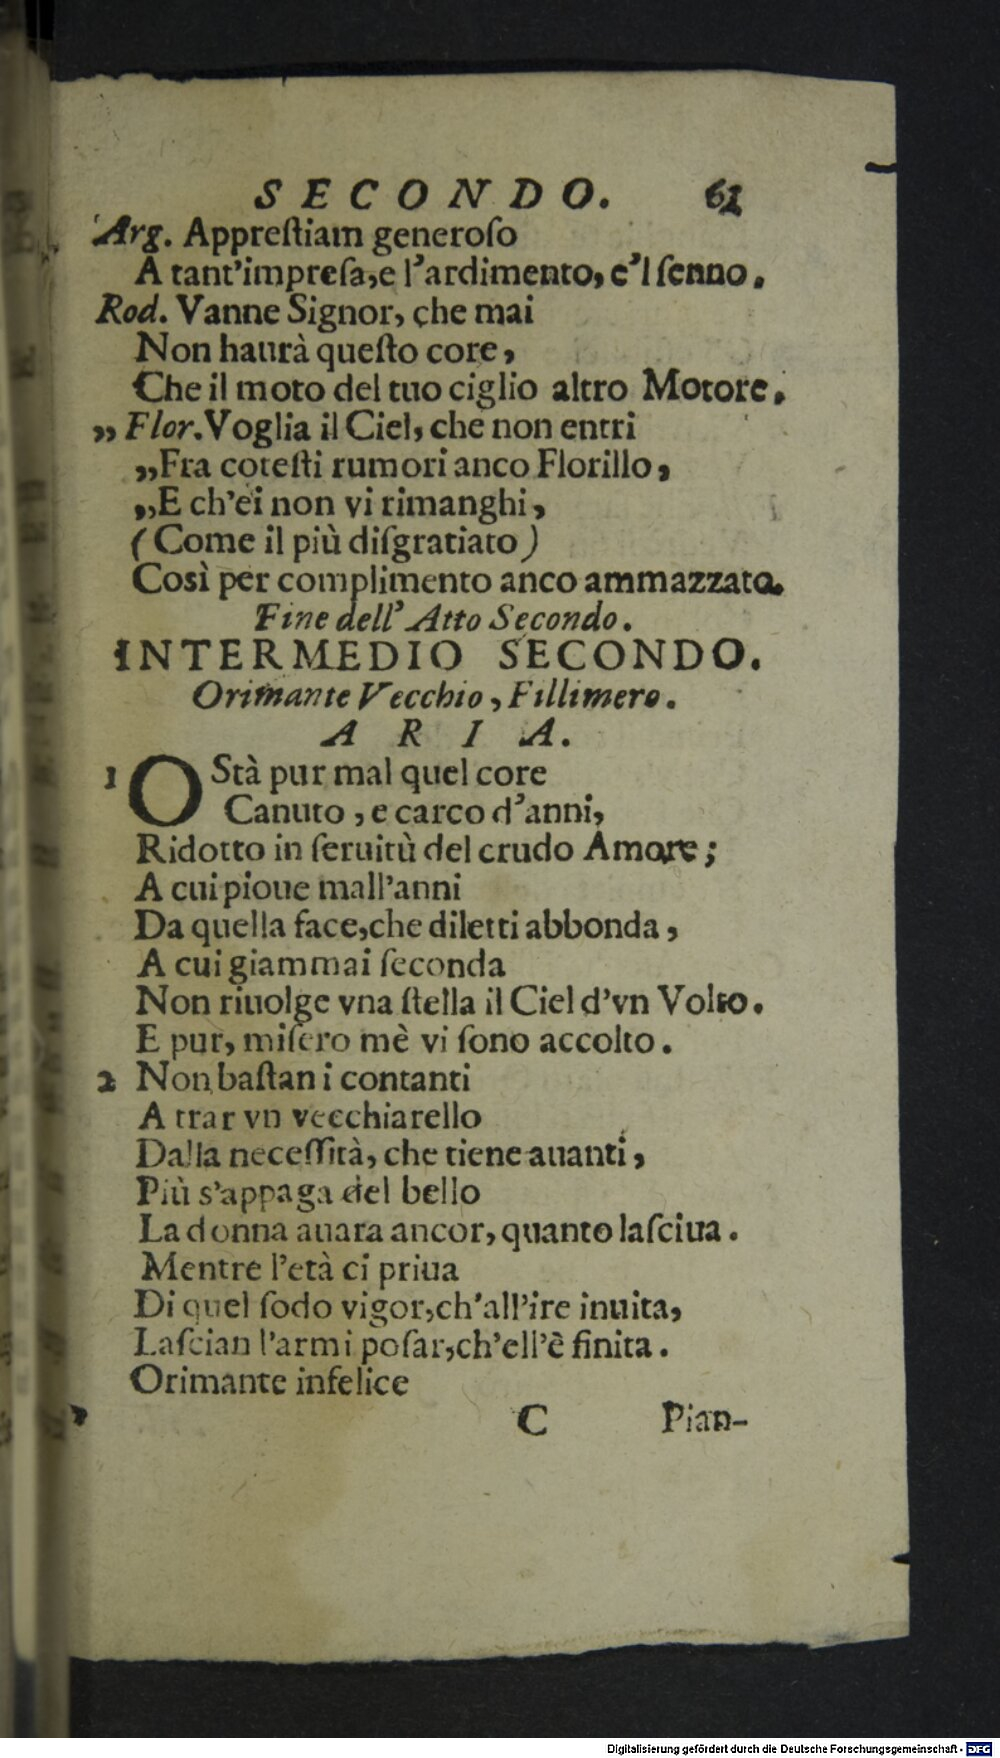 SECONDO. 61
Arg. Appreſtiam generoſo
A tant'impreſa,e l'ardimento, e'l ſenno.
Rod. Vanne Signor, che mai
Non haurà queſto core,
Che il moto del tuo ciglio altro Motore.
„ Flor. Voglia il Ciel, che non entri
„Fra coteſti rumori anco Florillo,
„E ch'ei non vi rimanghi,
(Come il più diſgratiato)
Così per complimento anco ammazzato.
Fine dell'Atto Secondo.
INTERMEDIO SECONDO.
Orimante Vecchio, Fillimero.
ARIA.
1 O Stà pur mal quel core
Canuto, e carco d'anni,
Ridotto in ſeruitù del crudo Amore;
A cui pioue mall'anni
Da quella face,che diletti abbonda,
A cui giammai ſeconda
Non riuolge vna ſtella il Ciel d'vn Volto.
E pur, miſero mè vi ſono accolto.
2 Non baſtan i contanti
A trar vn vecchiarello
Dalla neceſſità, che tiene auanti,
Più s'appaga del bello
La donna auara ancor, quanto laſciua.
Mentre l'età ci priua
Di quel ſodo vigor,ch'all'ire inuita,
Laſcian l'armi poſar,ch'ell'è finita.
Orimante infelice
C Pian-
Digitalisierung gefördert durch die Deutsche Forschungsgemeinschaft - DFG